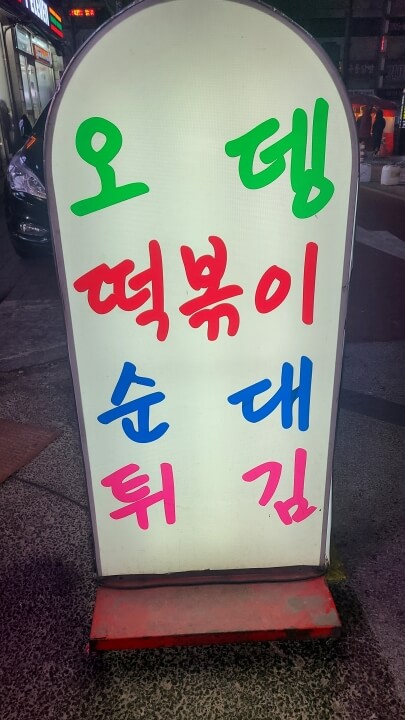 오뎅
떡볶이
순대
튀김